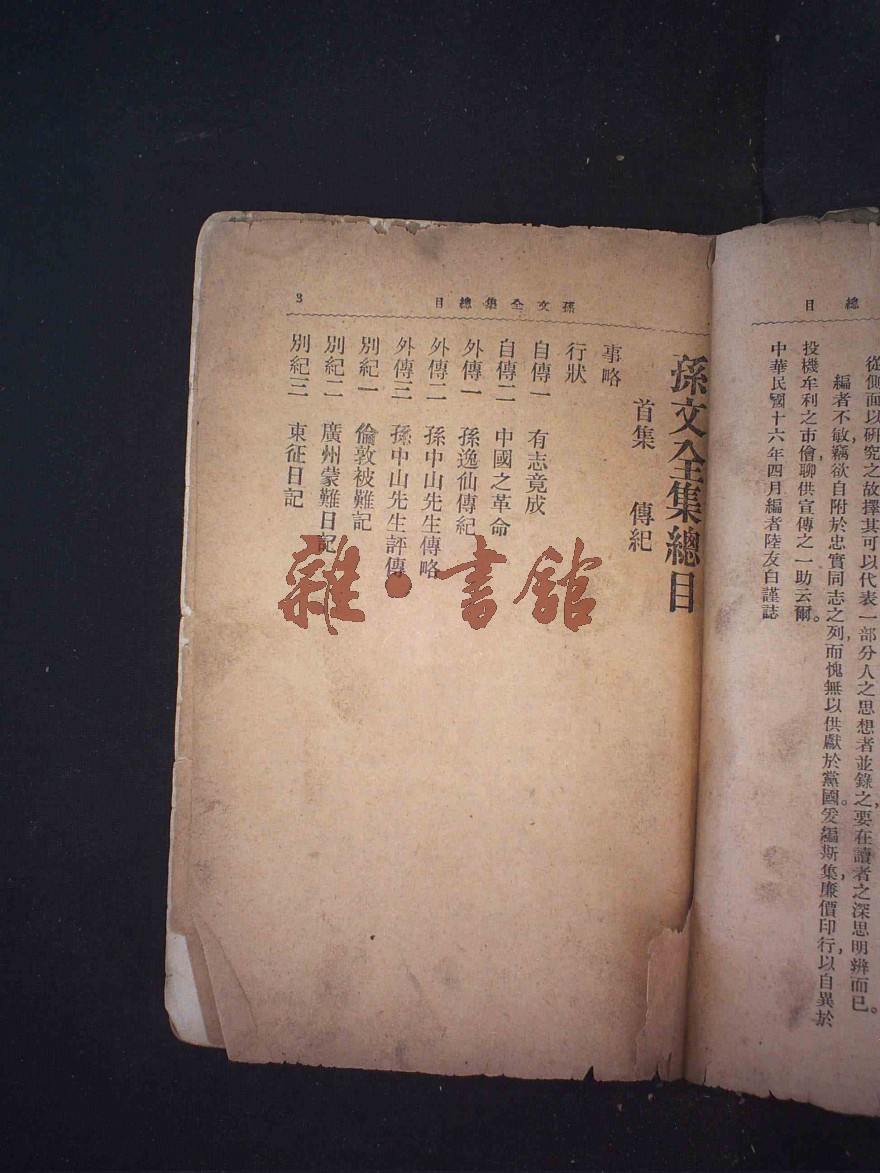 目 總
從側面以研究之故擇其可以代表一部分人之思想者並錄之，要在讀者之深思明辨而已。
編者不敏，竊欲自附於忠實同志之列，而愧無以供獻於黨國。爰編斯集，廉價印行，以自異於
投機牟利之市儈，聊供宣傳之一助云爾。
中華民國十六年四月編者陸友白謹誌
目總集全文孫
3
孫文全集總目
首集 傳紀
事略
行狀
自傳一 有志竟成
自傳二 中國之革命
外傳一 孫逸仙傳紀
外傳二 孫中山先生傳略
外傳三 孫中山先生評傳
別紀一 倫敦被難記
別紀二 廣州蒙難日記
別紀三 東征日記
雜·書館